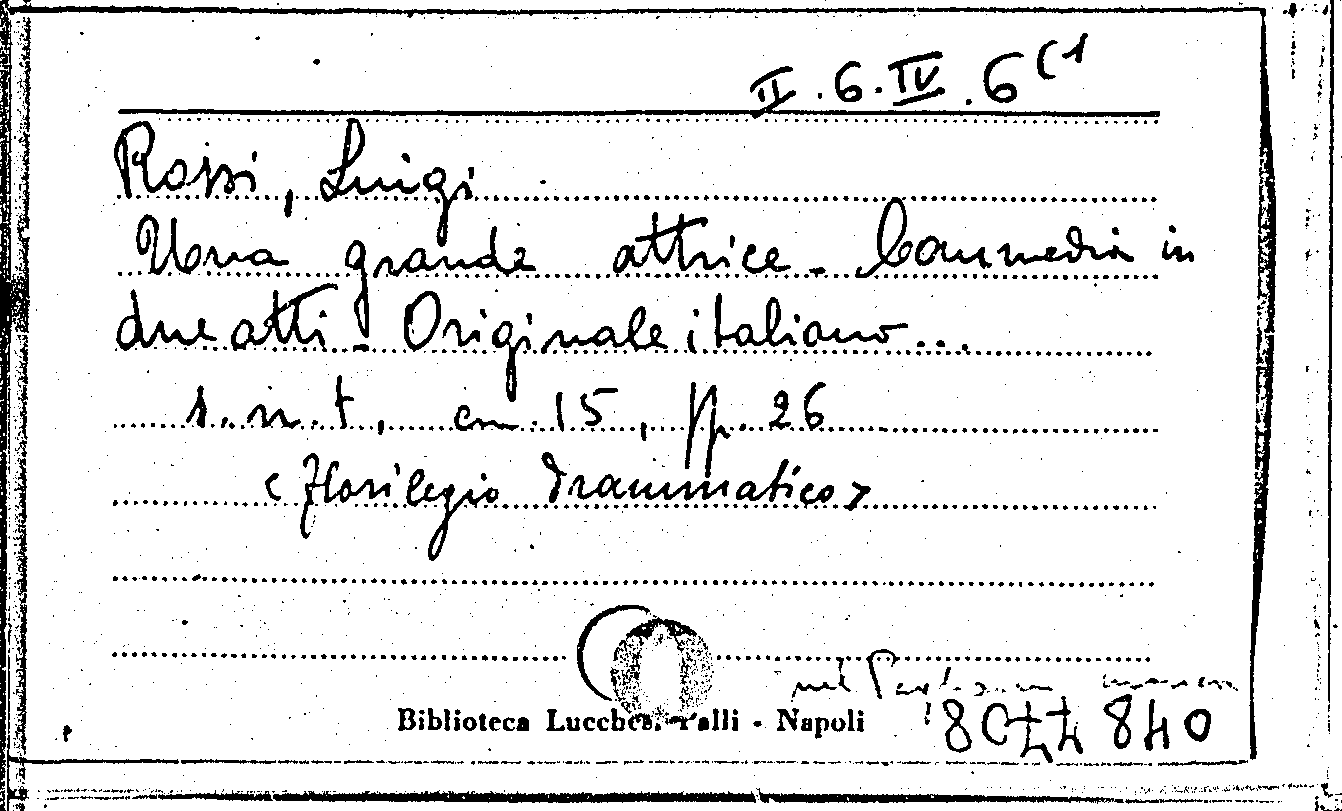 II.6.IV.6(1
Rossi, Luigi
Una grande attrice - Commedia in
due atti - Originale italiano...
s.n.t., cm. 15, pp. 26
< Florilegio drammatico >
nel
Biblioteca Lucches. Palli - Napoli
840